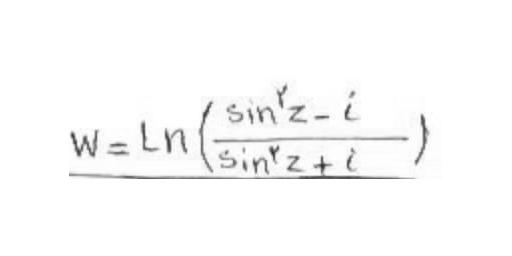 W = Ln(sin^۲z - i / sin^۲z + i)